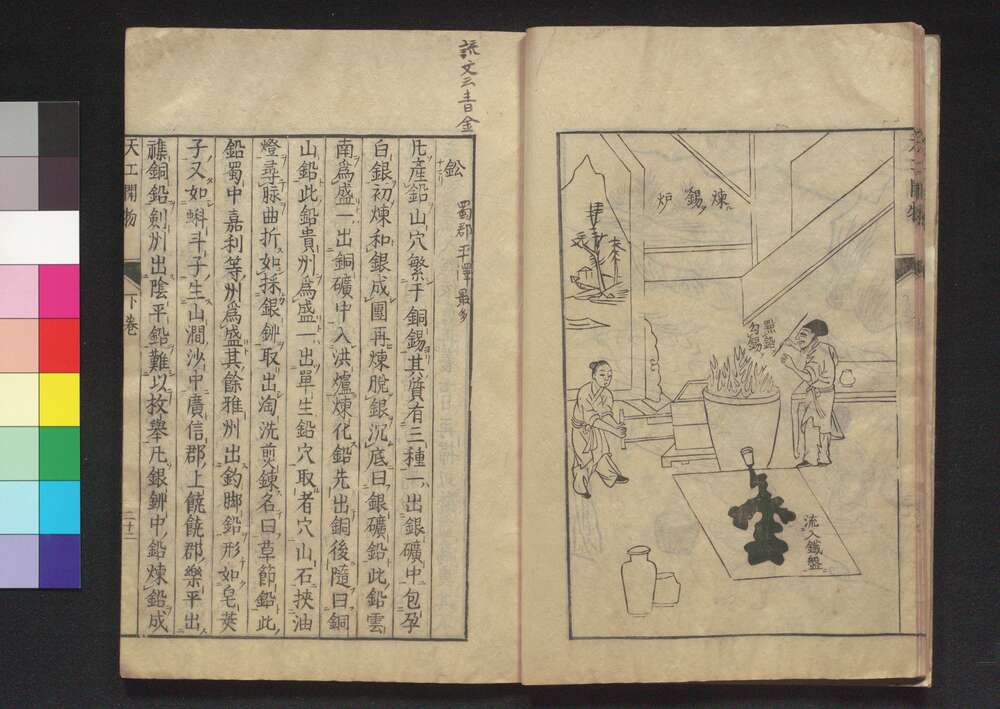 煉錫炉
點鉛勾錫
流入鐵盤
説文云青金
鈆 蜀郡平澤最多
凢産鉛山穴繁于銅錫其質有三種一出銀礦中包孕
白銀初煉和銀成團再煉脫銀沉底曰銀礦鉛此鉛雲
南爲盛一出銅礦中入洪爐煉化鉛先出銅後隨曰銅
山鉛此鉛貴州爲盛一出單生鉛穴取者穴山石挾油
燈尋脉曲折如採銀鉚取出淘洗煎鍊名曰草節鉛此
鉛蜀中嘉利等州爲盛其餘雅州出釣脚鉛形如皂莢
子又如蝌斗子生山澗沙中廣信郡上饒饒郡樂平出
襍銅鉛劍州出陰平鉛難以枚舉凢銀鉚中鉛煉鉛成
天工開物 下巻